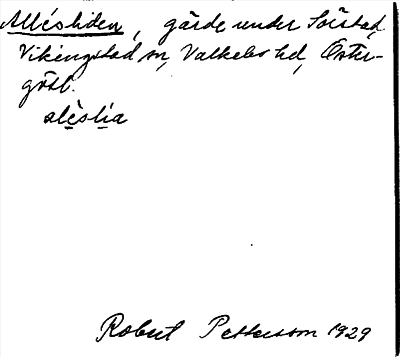 Alléshiden, gärde under Sörstad,
Vikingstad sn, Valkebo hd, Öster-
götl.
alèslia
Robert Pettersson 1929